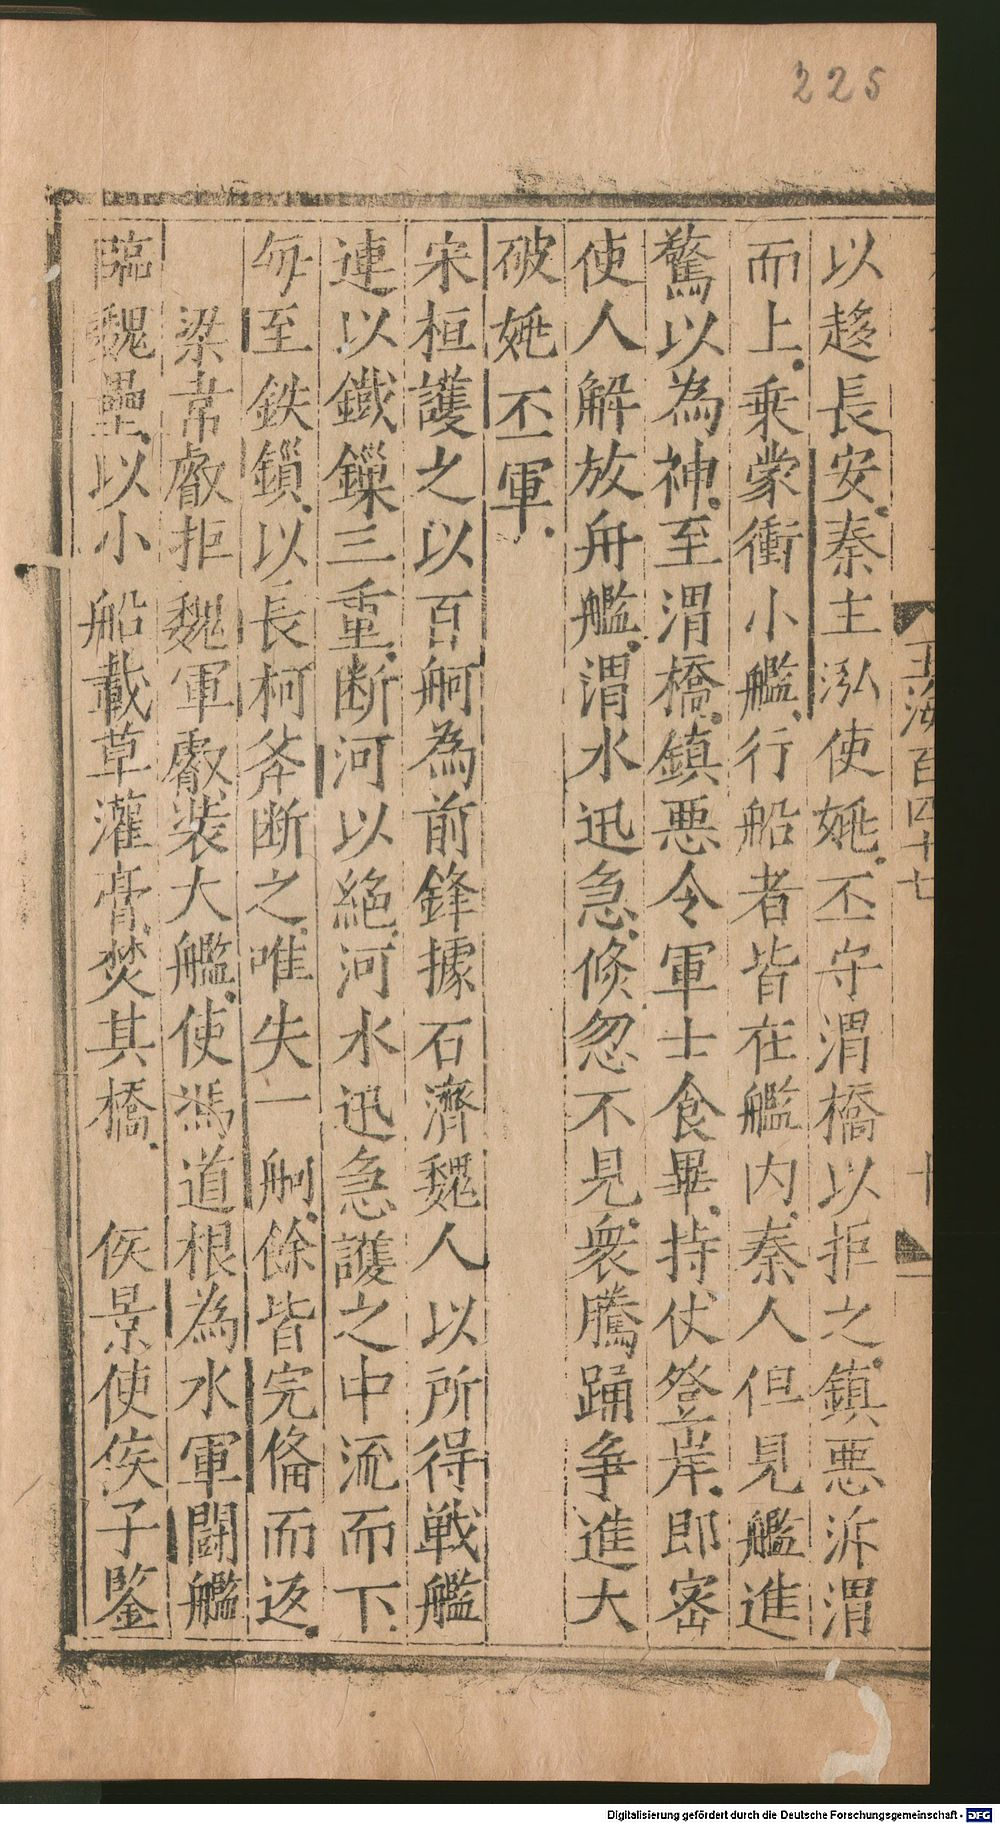 225
玉海百四十七
十
以趍長安秦主泓使姚丕守渭橋以拒之鎮惡泝渭
而上乗蒙衝小艦行船者皆在艦内秦人但見艦進
驚以為神至渭橋鎮悪令軍士食畢持仗登岸即密
使人解放舟艦渭水迅急倐忽不見衆騰踊争進大
破姚丕軍
宋桓護之以百舸為前鋒據石濟魏人以所得戦艦
連以鐵鏁三重断河以絕河水迅急護之中流而下
每至鉄鎻以長柯斧断之唯失一舸餘皆完俻而返
梁韋叡拒魏軍叡装大艦使馮道根為水軍闘艦
臨魏壘以小船載草灌膏焚其橋 侯景使侯子鑒
Digitalisierung gefördert durch die Deutsche Forschungsgemeinschaft - DFG